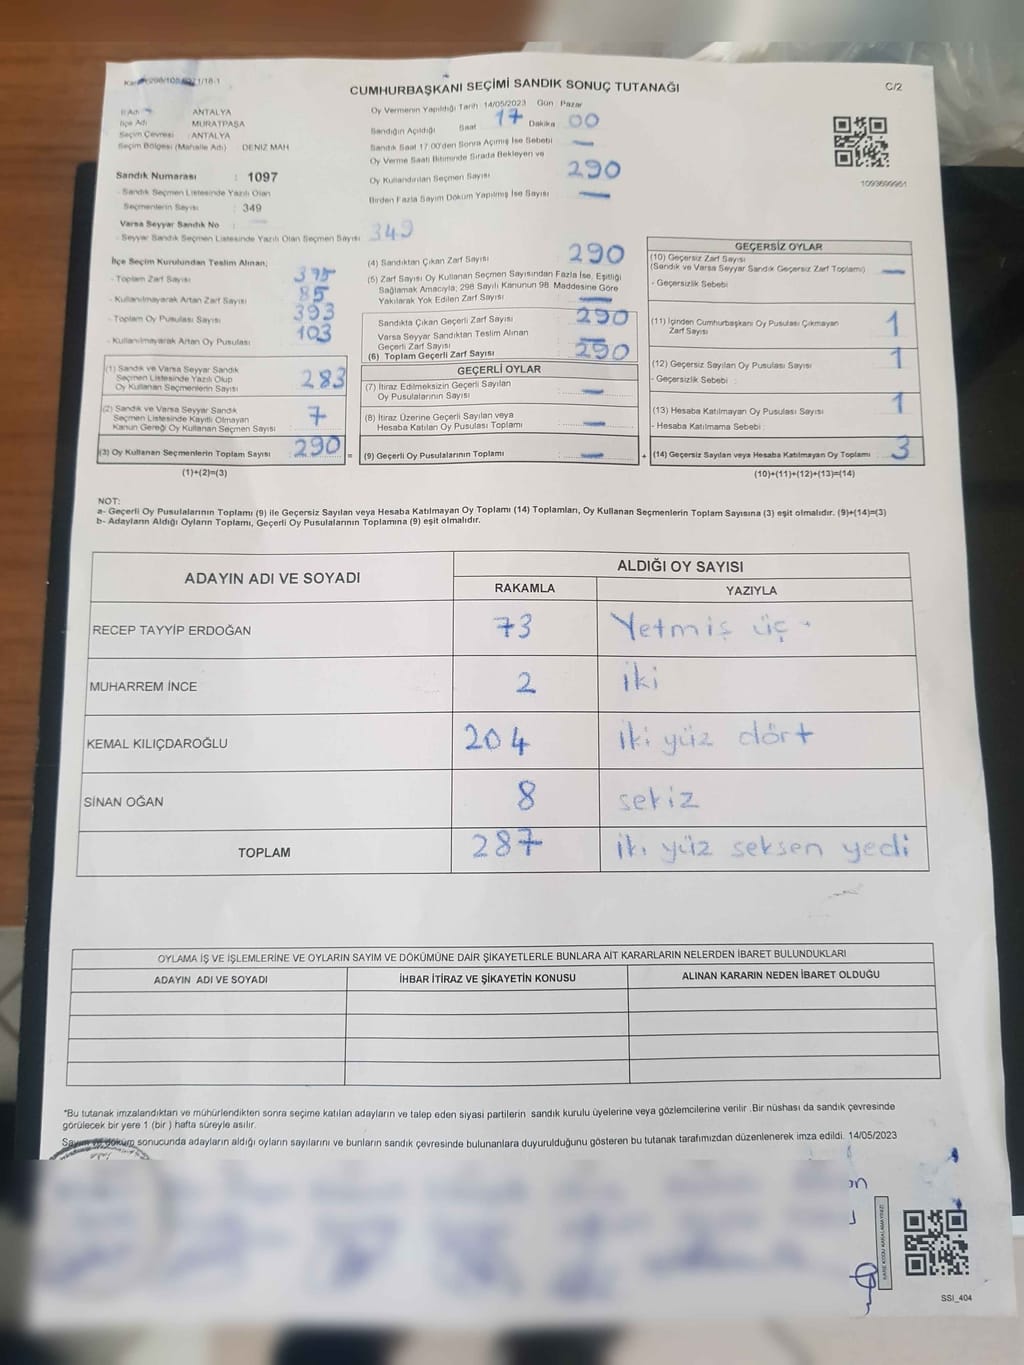 CUMHURBAŞKANI SEÇİMİ SANDIK SONUÇ TUTANAĞI
C/2
İl Adı ANTALYA
İlçe Adı MURATPAŞA
Seçim Çevresi : ANTALYA
Seçim Bölgesi (Mahalle Adı) DENİZ MAH
Sandık Numarası : 1097
- Sandık Seçmen Listesinde Yazılı Olan
Seçmenlerin Sayısı : 349
Varsa Seyyar Sandık No :
- Seyyar Sandık Seçmen Listesinde Yazılı Olan Seçmen Sayısı 349
Oy Vermenin Yapıldığı Tarih 14/05/2023 Gün Pazar
Sandığın Açıldığı Saat 17 Dakika 00
Sandık Saat 17.00'den Sonra Açılmış İse Sebebi —
Oy Verme Saati Bitiminde Sırada Bekleyen ve
Oy Kullandırılan Seçmen Sayısı 290
Birden Fazla Sayım Döküm Yapılmış İse Sayısı —
1093699951
İlçe Seçim Kurulundan Teslim Alınan;
- Toplam Zarf Sayısı 375
- Kullanılmayarak Artan Zarf Sayısı 85
- Toplam Oy Pusulası Sayısı 393
- Kullanılmayarak Artan Oy Pusulası 103
(1) Sandık ve Varsa Seyyar Sandık
Seçmen Listesinde Yazılı Olup
Oy Kullanan Seçmenlerin Sayısı 283
(2) Sandık ve Varsa Seyyar Sandık
Seçmen Listesinde Kayıtlı Olmayan
Kanun Gereği Oy Kullanan Seçmen Sayısı 7
(3) Oy Kullanan Seçmenlerin Toplam Sayısı 290 =
(1)+(2)=(3)
(4) Sandıktan Çıkan Zarf Sayısı 290
(5) Zarf Sayısı Oy Kullanan Seçmen Sayısından Fazla İse, Eşitliği
Sağlamak Amacıyla; 298 Sayılı Kanunun 98. Maddesine Göre
Yakılarak Yok Edilen Zarf Sayısı —
Sandıkta Çıkan Geçerli Zarf Sayısı 290
Varsa Seyyar Sandıktan Teslim Alınan
Geçerli Zarf Sayısı —
(6) Toplam Geçerli Zarf Sayısı 290
GEÇERLİ OYLAR
(7) İtiraz Edilmeksizin Geçerli Sayılan
Oy Pusulalarının Sayısı —
(8) İtiraz Üzerine Geçerli Sayılan veya
Hesaba Katılan Oy Pusulası Toplamı —
(9) Geçerli Oy Pusulalarının Toplamı : — +
GEÇERSİZ OYLAR
(10) Geçersiz Zarf Sayısı
(Sandık ve Varsa Seyyar Sandık Geçersiz Zarf Toplamı) —
- Geçersizlik Sebebi
(11) İçinden Cumhurbaşkanı Oy Pusulası Çıkmayan
Zarf Sayısı 1
(12) Geçersiz Sayılan Oy Pusulası Sayısı 1
- Geçersizlik Sebebi :
(13) Hesaba Katılmayan Oy Pusulası Sayısı 1
- Hesaba Katılmama Sebebi :
(14) Geçersiz Sayılan veya Hesaba Katılmayan Oy Toplamı 3
(10)+(11)+(12)+(13)=(14)
NOT:
a- Geçerli Oy Pusulalarının Toplamı (9) ile Geçersiz Sayılan veya Hesaba Katılmayan Oy Toplamı (14) Toplamları, Oy Kullanan Seçmenlerin Toplam Sayısına (3) eşit olmalıdır. (9)+(14)=(3)
b- Adayların Aldığı Oyların Toplamı, Geçerli Oy Pusulalarının Toplamına (9) eşit olmalıdır.
ADAYIN ADI VE SOYADI
ALDIĞI OY SAYISI
RAKAMLA YAZIYLA
RECEP TAYYİP ERDOĞAN 73 Yetmiş üç
MUHARREM İNCE 2 iki
KEMAL KILIÇDAROĞLU 204 iki yüz dört
SİNAN OĞAN 8 sekiz
TOPLAM 287 iki yüz seksen yedi
OYLAMA İŞ VE İŞLEMLERİNE VE OYLARIN SAYIM VE DÖKÜMÜNE DAİR ŞİKAYETLERLE BUNLARA AİT KARARLARIN NELERDEN İBARET BULUNDUKLARI
ADAYIN ADI VE SOYADI İHBAR İTİRAZ VE ŞİKAYETİN KONUSU ALINAN KARARIN NEDEN İBARET OLDUĞU
*Bu tutanak imzalandıktan ve mühürlendikten sonra seçime katılan adayların ve talep eden siyasi partilerin sandık kurulu üyelerine veya gözlemcilerine verilir .Bir nüshası da sandık çevresinde
görülecek bir yere 1 (bir ) hafta süreyle asılır.
Sayım ve döküm sonucunda adayların aldığı oyların sayılarını ve bunların sandık çevresinde bulunanlara duyurulduğunu gösteren bu tutanak tarafımızdan düzenlenerek imza edildi. 14/05/2023
SSI_404